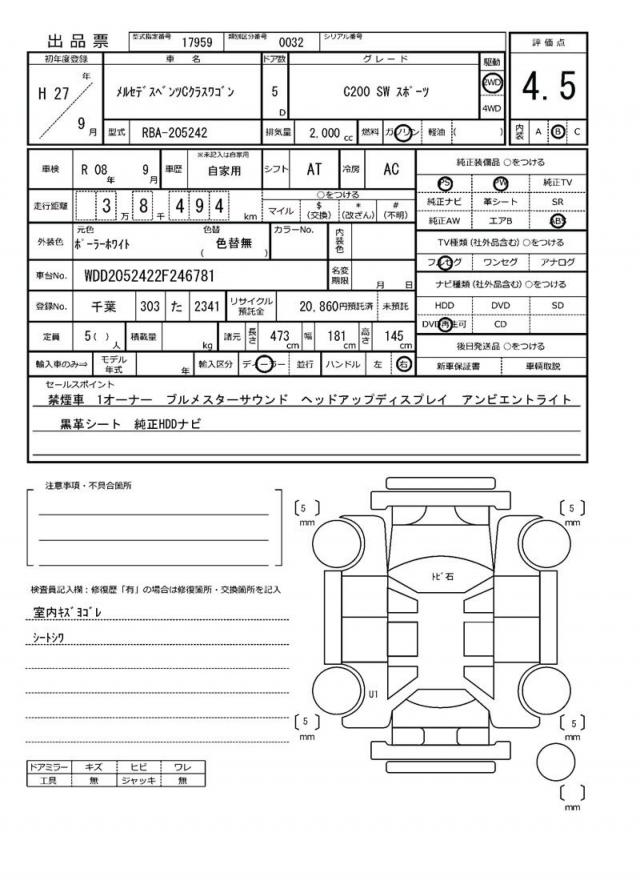 出品票 型式指定番号 17959 類別区分番号 0032 シリアル番号
初年度登録 車 名 ドア数 グレード 駆動 評価点
H 27 年 9 月 メルセデスベンツCクラスワゴン 5 D C200 SW スポーツ 2WD 4WD 4.5
型式 RBA-205242 排気量 2,000 cc 燃料 ガソリン 軽油 ( ) 内装 A B C
車検 R 08 年 9 月 車歴 ※未記入は自家用 自家用 シフト AT 冷房 AC
走行距離 3 万 8 千 4 9 4 km ○をつける
マイル $(交換) *(改ざん) #(不明)
外装色 元色 ポーラーホワイト 色替 ( 色替無 ) カラーNo. 内装色
車台No. WDD2052422F246781 名変期限 月 日
登録No. 千葉 303 た 2341 リサイクル預託金 20,860円預託済 未預託
定員 5( ) 人 積載量 kg 諸元 長さ 473 cm 幅 181 cm 高さ 145 cm
輸入車のみ⇒ モデル年式 年 輸入区分 ディーラー 並行 ハンドル 左 右
純正装備品 ○をつける
PS PW 純正TV
純正ナビ 革シート SR
純正AW エアB ABS
TV種類(社外品含む) ○をつける
フルセグ ワンセグ アナログ
ナビ種類(社外品含む) ○をつける
HDD DVD SD
DVD再生可 CD
後日発送品 ○をつける
新車保証書 車輌取説
セールスポイント
禁煙車 1オーナー ブルメスターサウンド ヘッドアップディスプレイ アンビエントライト
黒革シート 純正HDDナビ
注意事項・不具合箇所
検査員記入欄:修復歴「有」の場合は修復箇所・交換箇所を記入
室内キズヨゴレ
シートシワ
ドアミラー キズ ヒビ ワレ
工具 無 ジャッキ 無
[ 5 ] mm
[ 5 ] mm
トビ石
U1
[ 5 ] mm
[ 5 ] mm
[ ] mm